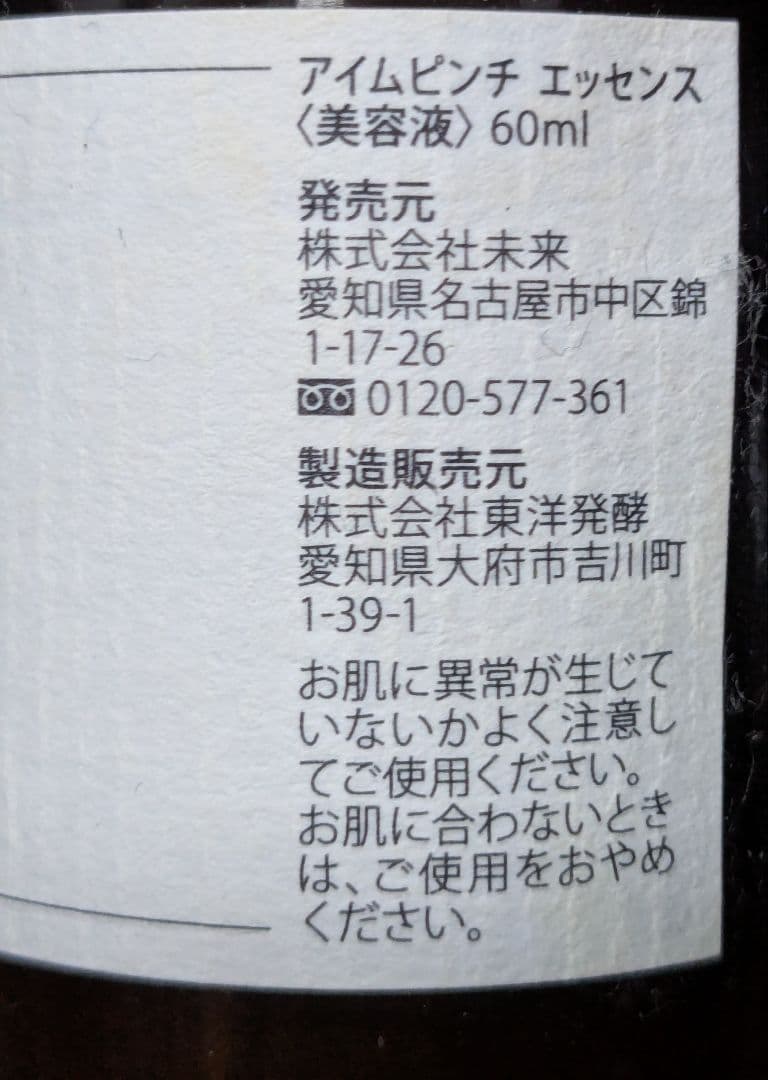 アイムピンチ エッセンス
〈美容液〉60ml
発売元
株式会社未来
愛知県名古屋市中区錦
1-17-26
0120-577-361
製造販売元
株式会社東洋発酵
愛知県大府市吉川町
1-39-1
お肌に異常が生じて
いないかよく注意し
てご使用ください。
お肌に合わないとき
は、ご使用をおやめ
ください。